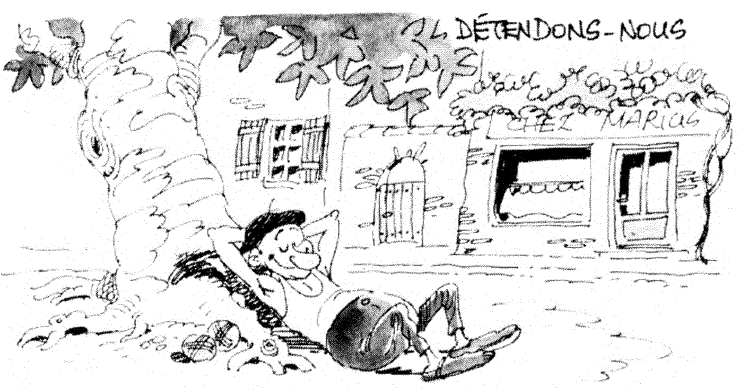 DÉTENDONS-NOUS
CHEZ MARIUS